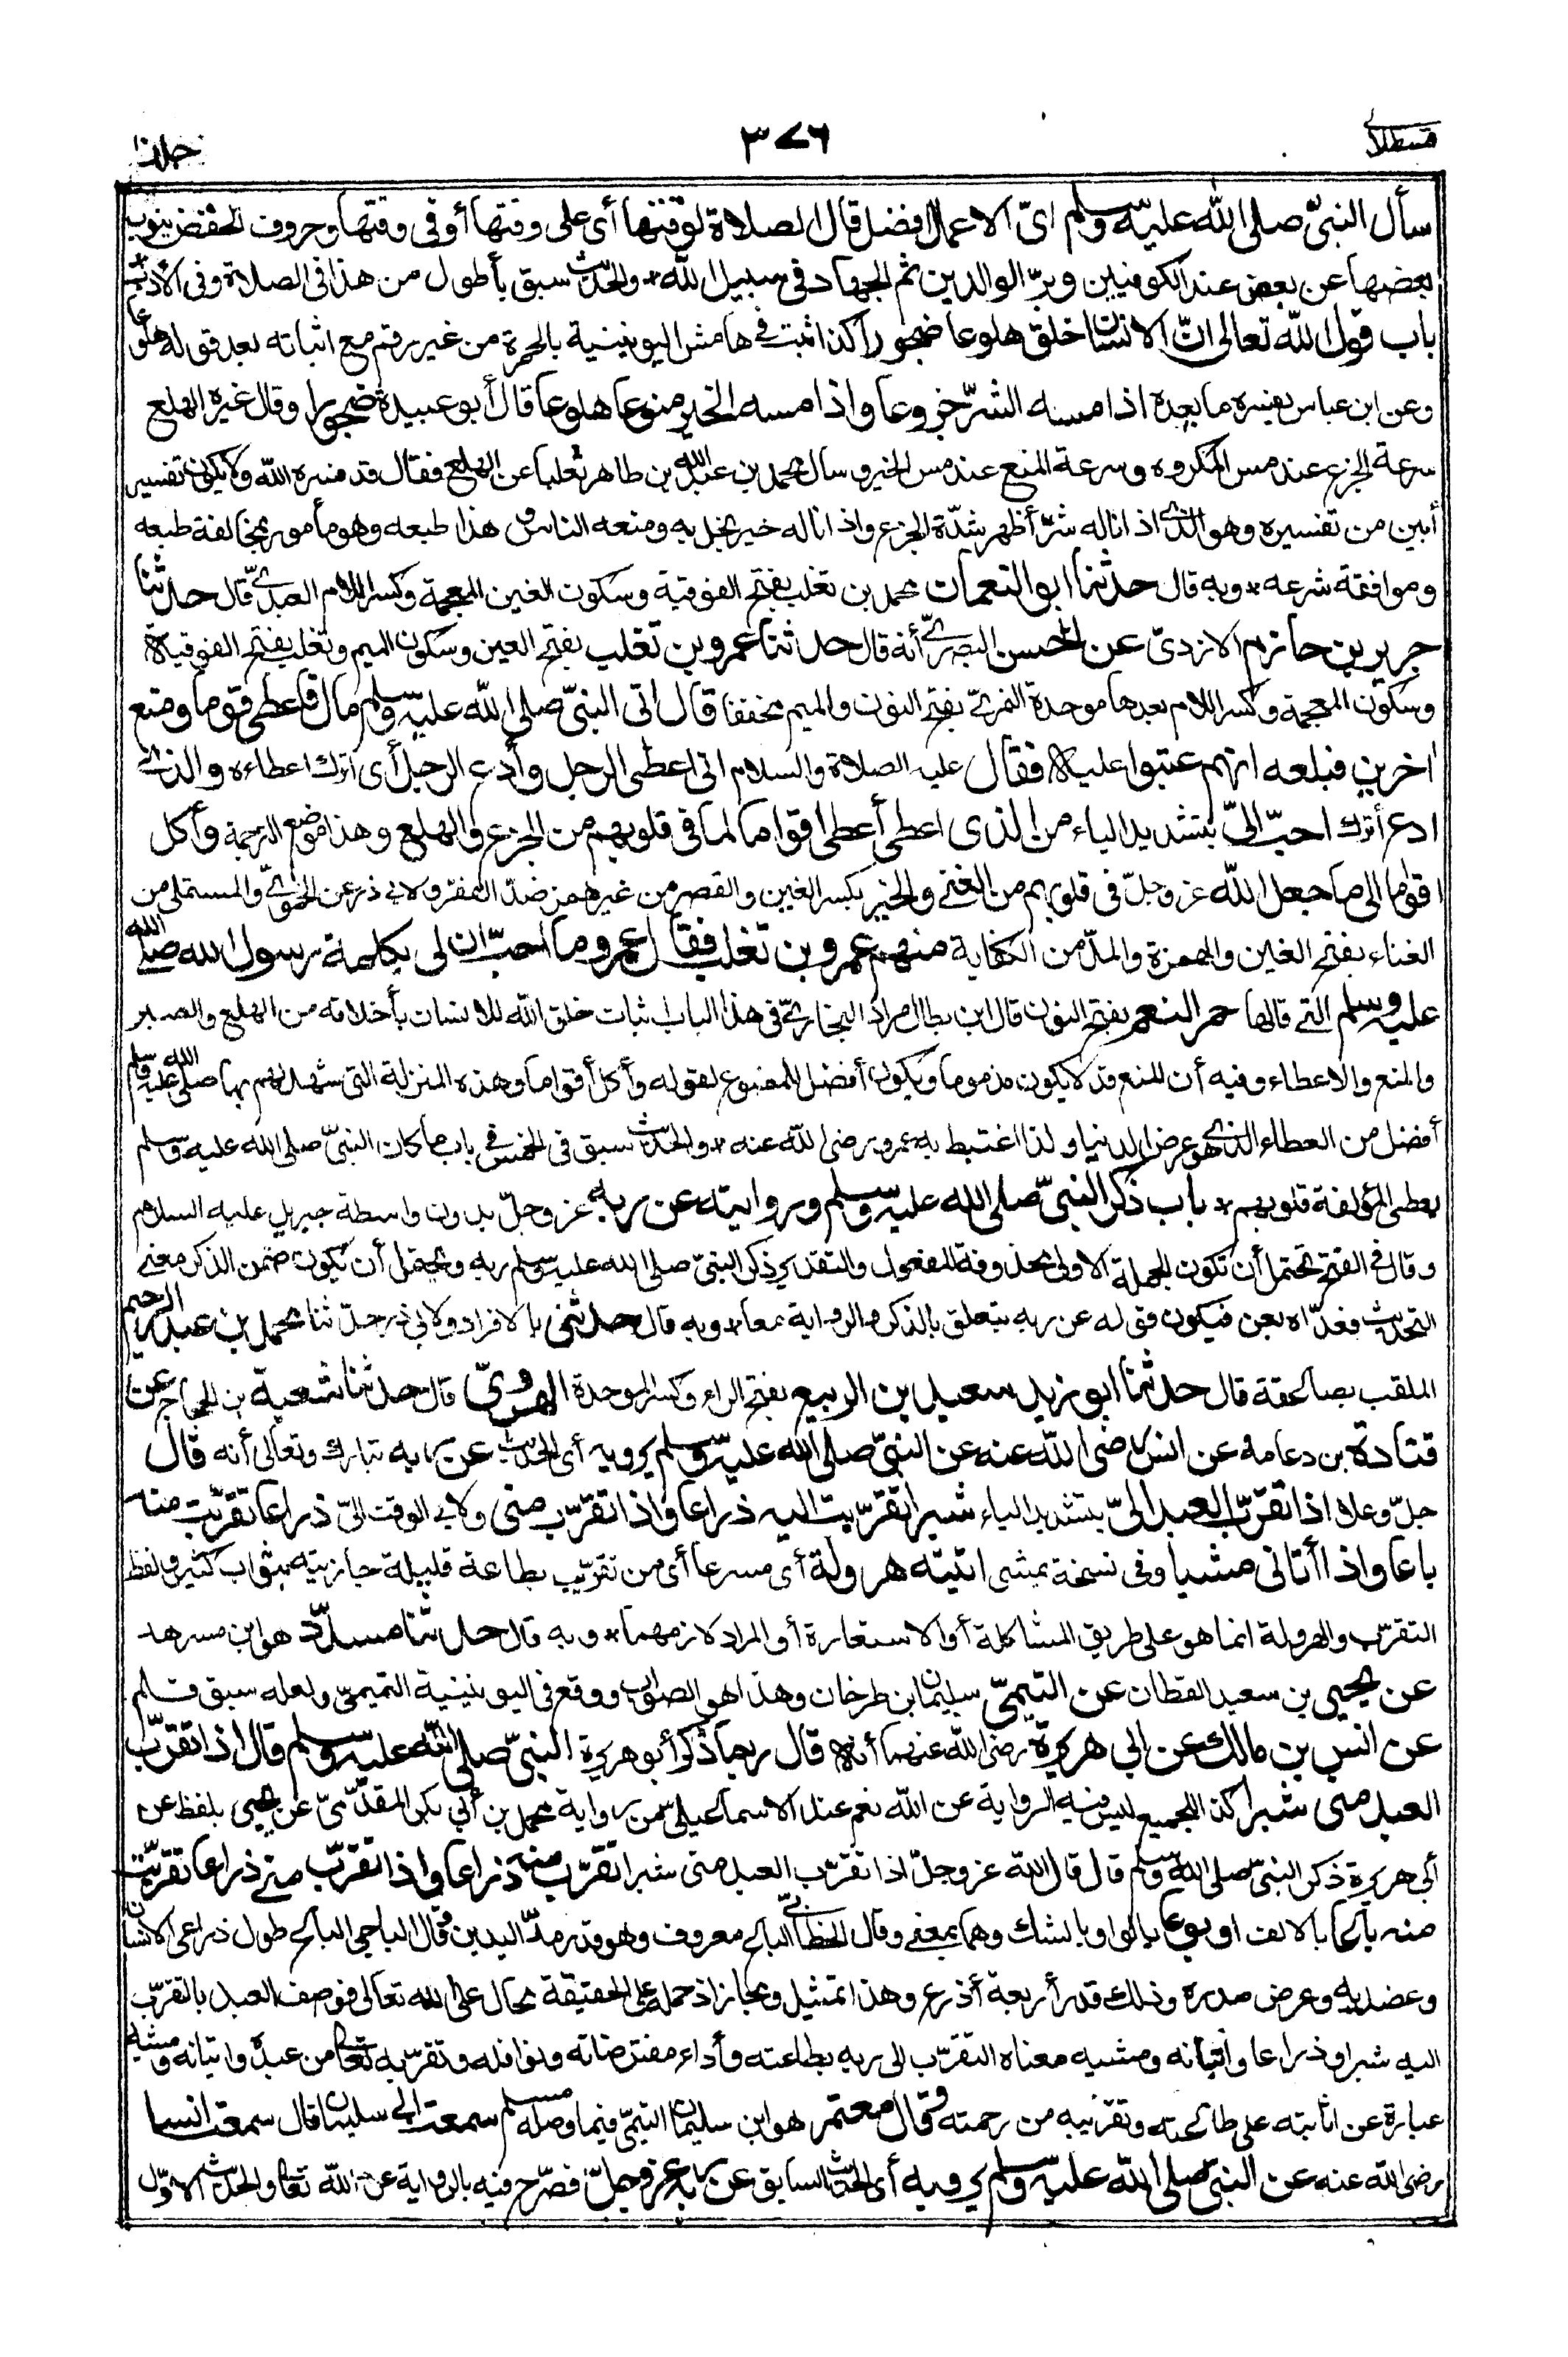 قسطلانی ٣٧٦ جلد١٠
سأل النبيّ صلى الله عليه وسلم اىّ الاعمال افضل قال الصلاة لوقتها أى على وقتها أو فى وقتها وحروف الخفض ينوب
بعضها عن بعض عند الكوفيين وبرّ الوالدين ثم الجهاد فى سبيل الله * والحديث سبق بأطول من هذا فى الصلاة وفى الأدب *
باب قول الله تعالى انّ الانسان خلق هلوعا ضجورا كذا ثبت فى هامش اليونينية بالحمرة من غير رقم مع اثباته بعد قوله هلوعا
وعن ابن عباس يفسره ما بعده اذا مسه الشرّ جزوعا واذا مسه الخير منوعا هلوعا قال أبو عبيدة ضجورا وقال غيره الهلع
سرعة الجزع عند مس المكروه وسرعة المنع عند مس الخير وسأل محمد بن عبد الله بن طاهر ثعلبا عن الهلع فقال قد فسره الله ولا يكون تفسير
أبين من تفسيره وهو الذى اذا ناله شرّ أظهر شدّة الجزع واذا ناله خير بخل به ومنعه الناس وهذا طبعه وهو مأمور بمخالفة طبعه
وموافقة شرعه * وبه قال حدثنا ابو النعمان محمد بن تغلب بفتح الفوقية وسكون الغين المعجمة وكسر اللام العبدىّ قال حدثنا
جرير بن حازم الازدىّ عن الحسن البصرىّ أنه قال حدثنا عمرو بن تغلب بفتح العين وسكون الميم وتغلب بفتح الفوقية
وسكون المعجمة وكسر اللام بعدها موحدة النمرىّ بفتح النون والميم مخففا قال اتى النبيّ صلى الله عليه وسلم مال فاعطى قوما ومنع
اخرين فبلغه انهم عتبوا عليه فقال عليه الصلاة والسلام انى اعطى الرجل وأدع الرجل أى أترك اعطاءه والذى
ادع أترك احبّ الىّ بتشديد الياء من الذى اعطى أعطى اقواما لما فى قلوبهم من الجزع والهلع وهذا موضع الترجمة وأكل
اقواما الى ما جعل الله عز وجلّ فى قلوبهم من الغنى والخير بكسر الغين والقصر من غير همز ضدّ الفقر ولابى ذر عن الحموىّ والمستملى من
الغناء بفتح الغين والهمزة والمدّ من الكفاية منهم عمرو بن تغلب فقال عمرو ما احبّ ان لى بكلمة رسول الله صلى الله
عليه وسلم التى قالها حمر النعم بفتح النون قال ابن بطال مراد البخارىّ فى هذا الباب اثبات خلق الله للانسان بأخلاقه من الهلع والصبر
والمنع والاعطاء وفيه أن المنع قد لا يكون مذموما ويكون أفضل للممنوع لقوله وأكل أقواما وهذه المنزلة التى شهد لهم بها صلى الله عليه وسلم
أفضل من العطاء الذى هو عرض الدنيا ولذا اغتبط به عمرو رضى الله عنه * والحديث سبق فى الخمس فى باب ما كان النبيّ صلى الله عليه وسلم
يعطى المؤلفة قلوبهم * باب ذكر النبيّ صلى الله عليه وسلم وروايته عن ربه عز وجلّ بدون واسطة جبريل عليه السلام
وقال فى الفتح يحتمل أن تكون الجملة الاولى محذوفة المفعول والتقدير ذكر النبيّ صلى الله عليه وسلم ربه ويحتمل أن يكون ضمن الذكر معنى
التحديث فعدّاه بعن فيكون قوله عن ربه يتعلق بالذكر والرواية معا * وبه قال حدثنى بالافراد ولابى ذر حدّثنا محمد بن عبد الرحيم
الملقب بصاعقة قال حدثنا ابو زيد سعيد بن الربيع بفتح الراء وكسر الموحدة الهروىّ قال حدثنا شعبة بن الحجاج عن
قتادة بن دعامة عن انس رضى الله عنه عن النبيّ صلى الله عليه وسلم يرويه أى الحديث عن ربه تبارك وتعالى أنه قال
جلّ وعلا اذا تقرّب العبد الىّ بتشديد الياء شبرا تقرّبت اليه ذراعا واذا تقرّب منى ولابى الوقت الىّ ذراعا تقرّبت منه
باعا واذا أتانى مشيا وفى نسخة يمشى اتيته هرولة أى مسرعا أى من تقرّب بطاعة قليلة جازيته بمثواب كثير ولفظ
التقرّب والهرولة انما هو على طريق المشاكلة أو الاستعارة أو المراد لازمهما * وبه قال حدثنا مسدّد هو ابن مسرهد
عن يحيى بن سعيد القطان عن التيمىّ سليمان ابن طرخان وهذا هو الصواب ووقع فى اليونينية التميمىّ ولعله سبق قلم
عن انس بن مالك عن ابى هريرة رضى الله عنهما أنه قال ربما ذكر أبو هريرة النبيّ صلى الله عليه وسلم قال اذا تقرّب
العبد منى شبرا كذا للجميع ليس فيه الرواية عن الله نعم عند الاسماعيلىّ من رواية محمد بن أبى بكر المقدّمىّ عن يحيى بلفظ عن
أبى هريرة ذكر النبيّ صلى الله عليه وسلم قال قال الله عز وجلّ اذا تقرّب العبد منى شبرا تقرّبت منه ذراعا واذا تقرّب منى ذراعا تقرّبت
منه باعا بالالف او بوعا بالواو بالشك وهما بمعنى وقال الخطابىّ الباع معروف وهو قدر مدّ اليدين وقال الباجى الباع طول ذراعى الانسان
وعضديه وعرض صدره وذلك قدر أربعة أذرع وهذا تمثيل ومجاز اذ حمله على الحقيقة محال على الله تعالى فوصف العبد بالتقرّب
اليه شبرا وذراعا واتيانه ومشيه معناه التقرّب الى ربه بطاعته وأداء مفترضاته ونوافله وتقرّبه تعالى من عبده واتيانه ومشيه
عبارة عن اثابته على طاعته وتقريبه من رحمته وقال معتمر هو ابن سليمان التيمىّ فيما وصله مسلم سمعت ابى سليمان قال سمعت انسا
رضى الله عنه عن النبيّ صلى الله عليه وسلم يرويه أى الحديث السابق عن ربه عز وجلّ فصرّح فيه بالرواية عن الله تعالى والحديث الاوّل